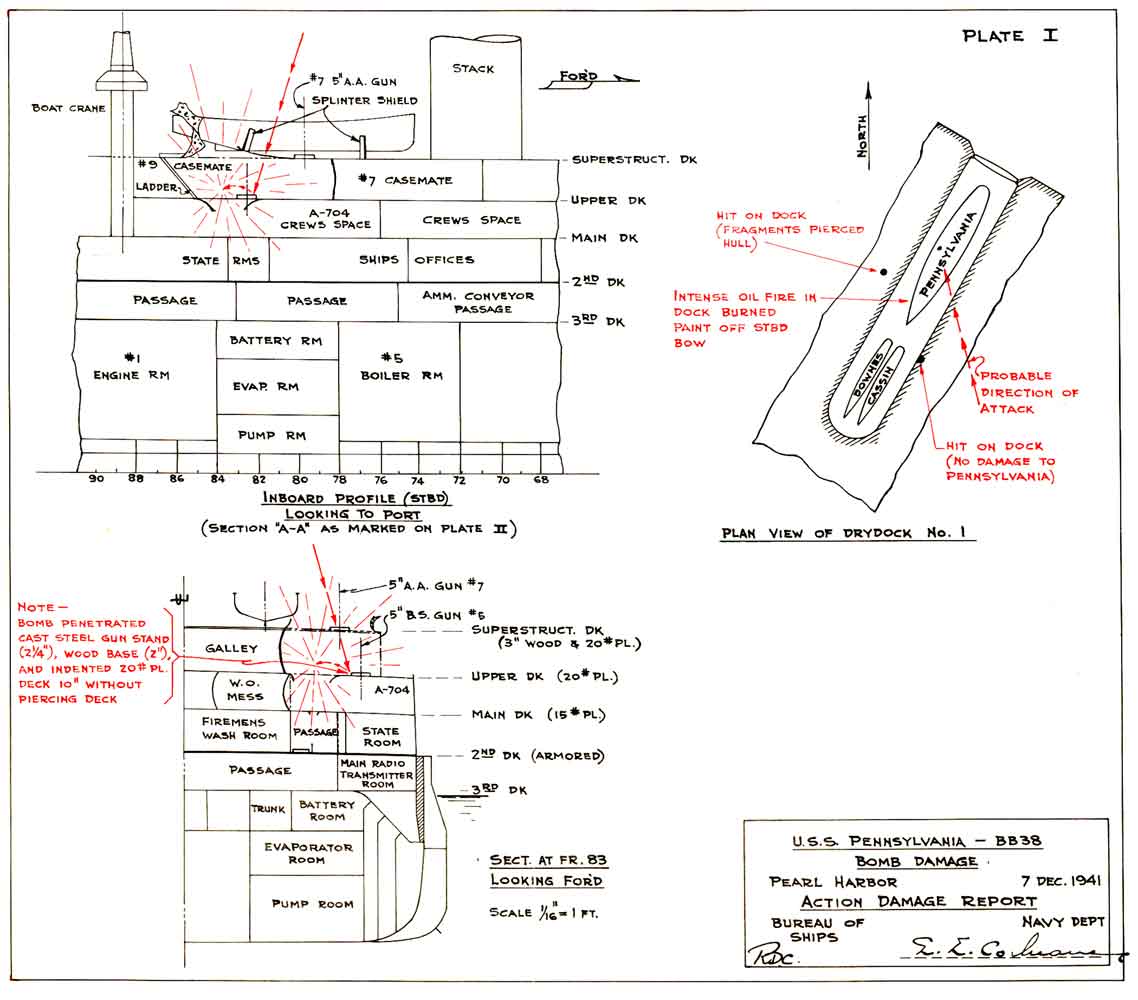 PLATE I
STACK
#7 5" A.A. GUN
SPLINTER SHIELD
FOR'D
BOAT CRANE
SUPERSTRUCT. DK
#9
CASEMATE
LADDER
#7 CASEMATE
UPPER DK
A-704
CREWS SPACE
CREWS SPACE
MAIN DK
STATE RMS
SHIPS OFFICES
2ND DK
PASSAGE
PASSAGE
AMM. CONVEYOR
PASSAGE
3RD DK
BATTERY RM
#1
ENGINE RM
#5
BOILER RM
EVAP. RM
PUMP RM
90 88 86 84 82 80 78 76 74 72 70 68
INBOARD PROFILE (STBD)
LOOKING TO PORT
(SECTION "A-A" AS MARKED ON PLATE II)
NORTH
HIT ON DOCK
(FRAGMENTS PIERCED
HULL)
PENNSYLVANIA
INTENSE OIL FIRE IN
DOCK BURNED
PAINT OFF STBD
BOW
DOWNES
CASSIN
PROBABLE
DIRECTION OF
ATTACK
HIT ON DOCK
(NO DAMAGE TO
PENNSYLVANIA)
PLAN VIEW OF DRYDOCK No. 1
5" A.A. GUN #7
5" B.S. GUN #5
NOTE—
BOMB PENETRATED
CAST STEEL GUN STAND
(2¼"), WOOD BASE (2"),
AND INDENTED 20# PL.
DECK 10" WITHOUT
PIERCING DECK
SUPERSTRUCT. DK
(3" WOOD & 20# PL.)
GALLEY
UPPER DK (20# PL.)
W.O.
MESS
A-704
MAIN DK (15# PL.)
FIREMENS
WASH ROOM
PASSAGE
STATE
ROOM
2ND DK (ARMORED)
PASSAGE
MAIN RADIO
TRANSMITTER
ROOM
3RD DK
TRUNK
BATTERY
ROOM
EVAPORATOR
ROOM
PUMP ROOM
SECT. AT FR. 83
LOOKING FOR'D
SCALE 1/16" = 1 FT.
U.S.S. PENNSYLVANIA - BB38
BOMB DAMAGE
PEARL HARBOR 7 DEC. 1941
ACTION DAMAGE REPORT
BUREAU OF
SHIPS
NAVY DEPT
RDC.
E. L. Cochrane